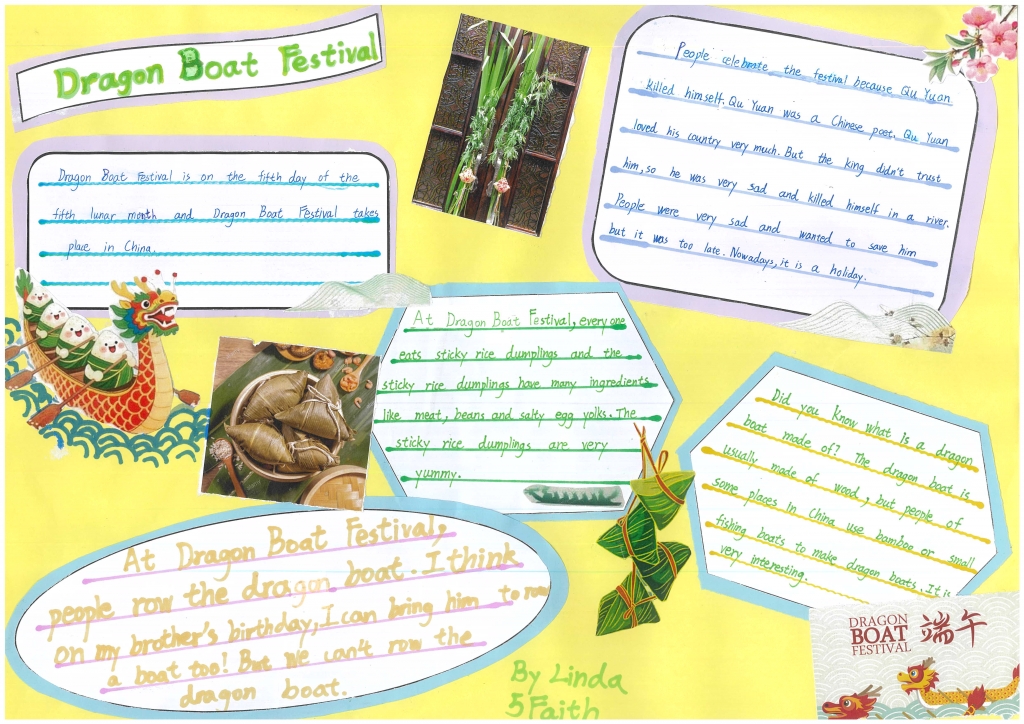 Dragon Boat Festival
Dragon Boat Festival is on the fifth day of the
fifth lunar month and Dragon Boat Festival takes
place in China.
People celebrate the festival because Qu Yuan
killed himself. Qu Yuan was a Chinese poet. Qu Yuan
loved his country very much. But the king didn't trust
him, so he was very sad and killed himself in a river.
People were very sad and wanted to save him
but it was too late. Nowadays, it is a holiday.
At Dragon Boat Festival, everyone
eats sticky rice dumplings and the
sticky rice dumplings have many ingredients
like meat, beans and salty egg yolks. The
sticky rice dumplings are very
yummy.
Did you know what is a dragon
boat made of? The dragon boat is
usually made of wood, but people of
some places in China use bamboo or small
fishing boats to make dragon boats. It is
very interesting.
At Dragon Boat Festival,
people row the dragon boat. I think
on my brother's birthday, I can bring him to row
a boat too! But we can't row the
dragon boat.
By Linda
5 Faith
DRAGON
BOAT
FESTIVAL
端午